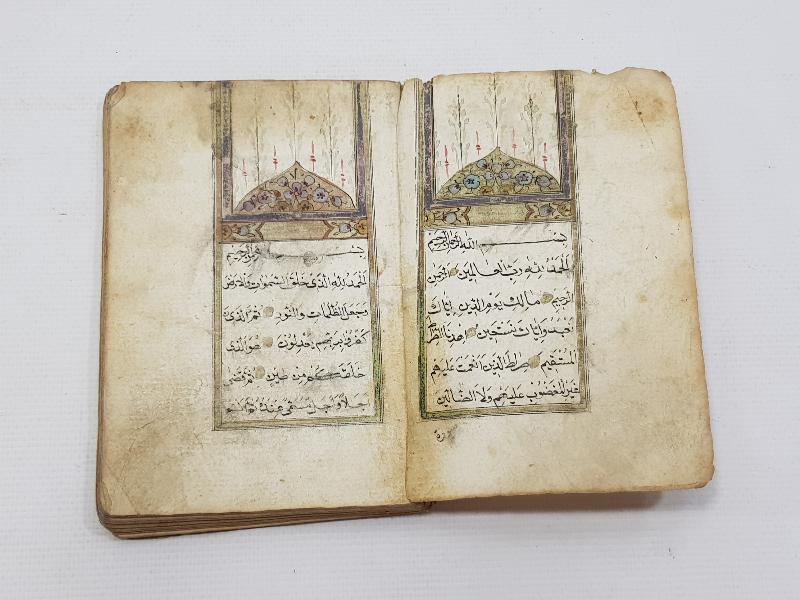 بسم الله الرحمن الرحيم
الحمد لله رب العالمين الرحمن
الرحيم مالك يوم الدين اياك
نعبد واياك نستعين اهدنا الصراط
المستقيم صراط الذين انعمت عليهم
غير المغضوب عليهم ولا الضالين
بسم الرحمن الرحيم
الحمد لله الذي خلق السموات والارض
وجعل الظلمات والنور ثم الذين
كفروا بربهم يعدلون هو الذي
خلقكم من طين ثم قضى
اجلا واجل مسمى عنده ثم انتم